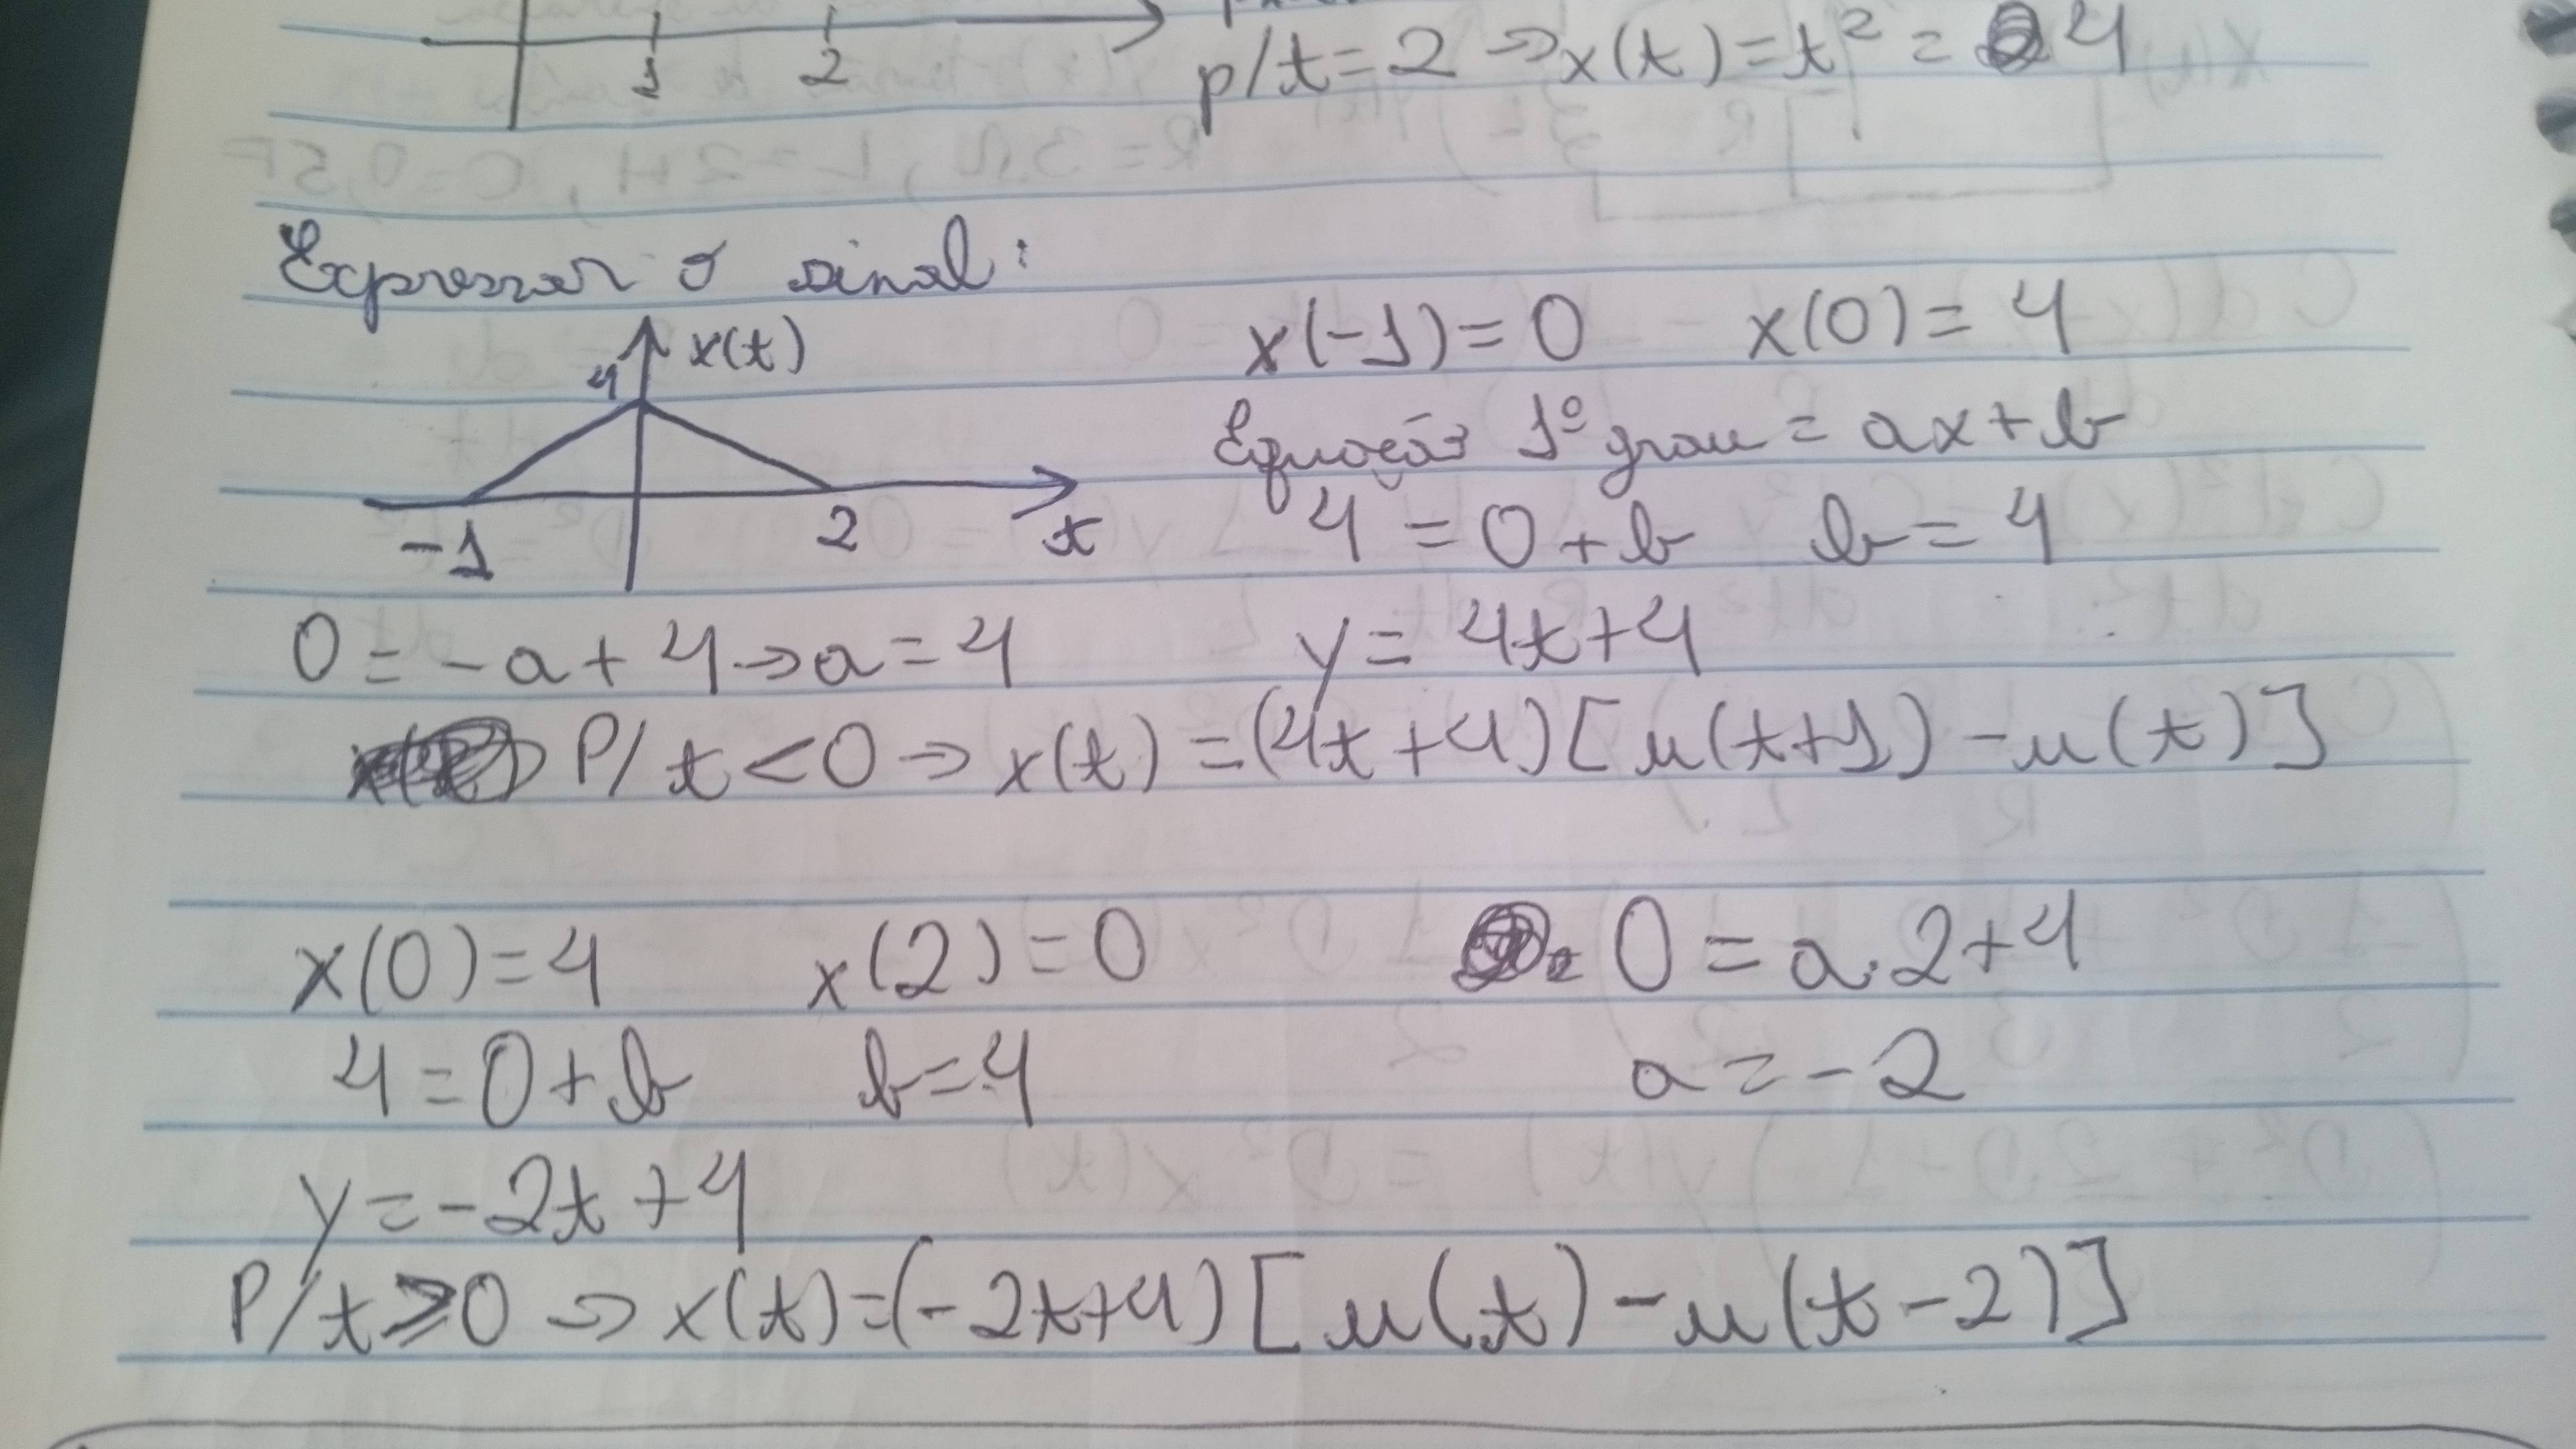 1 2
p/t=2 → x(t)=t² = 4
Expressar o sinal:
x(t)
4
-1 2 t
x(-1)=0 x(0)=4
Equação 1º grau = ax+b
4=0+b b=4
0=-a+4→a=4 y=4t+4
P/t<0 → x(t)=(4t+4)[u(t+1)-u(t)]
x(0)=4 x(2)=0 0=a.2+4
4=0+b b=4 a=-2
y=-2t+4
P/t≥0 → x(t)=(-2t+4)[u(t)-u(t-2)]